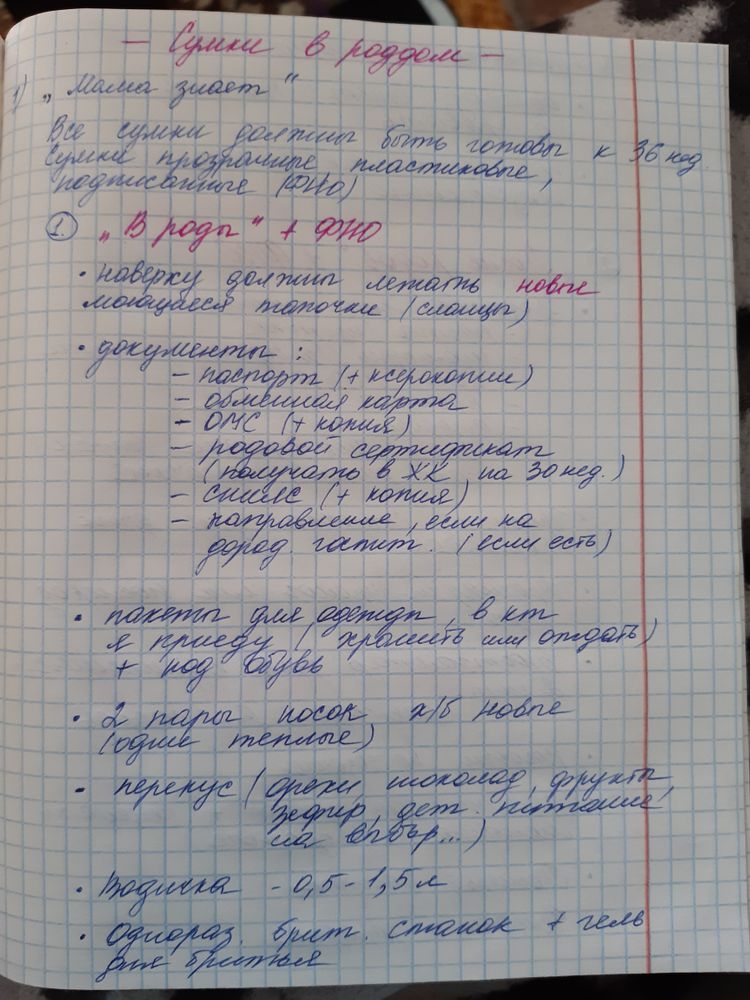 — Сумки в роддом —
1) „Мама знает"
Все сумки должны быть готовы к 36 нед.
Сумки прозрачные пластиковые,
подписанные (ФИО)
1. „В роды" + ФИО
• наверху должны лежать новые
моющиеся тапочки (сланцы)
• документы :
– паспорт (+ ксерокопии)
– обменная карта
– ОМС (+ копия)
– родовой сертификат
(получать в ЖК на 30 нед.)
– СНИЛС (+ копия)
– направление, если на
дород. госпит. (если есть)
• пакеты для одежды, в кот
я приеду (хранить или отдать)
+ под обувь
• 2 пары носок х/б новые
(одни теплые)
• перекус (орехи, шоколад, фрукты,
зефир, дет. питание,
на выбор...)
• Водичка – 0,5 – 1,5 л
• Однораз. брит. станок + гель
для бритья